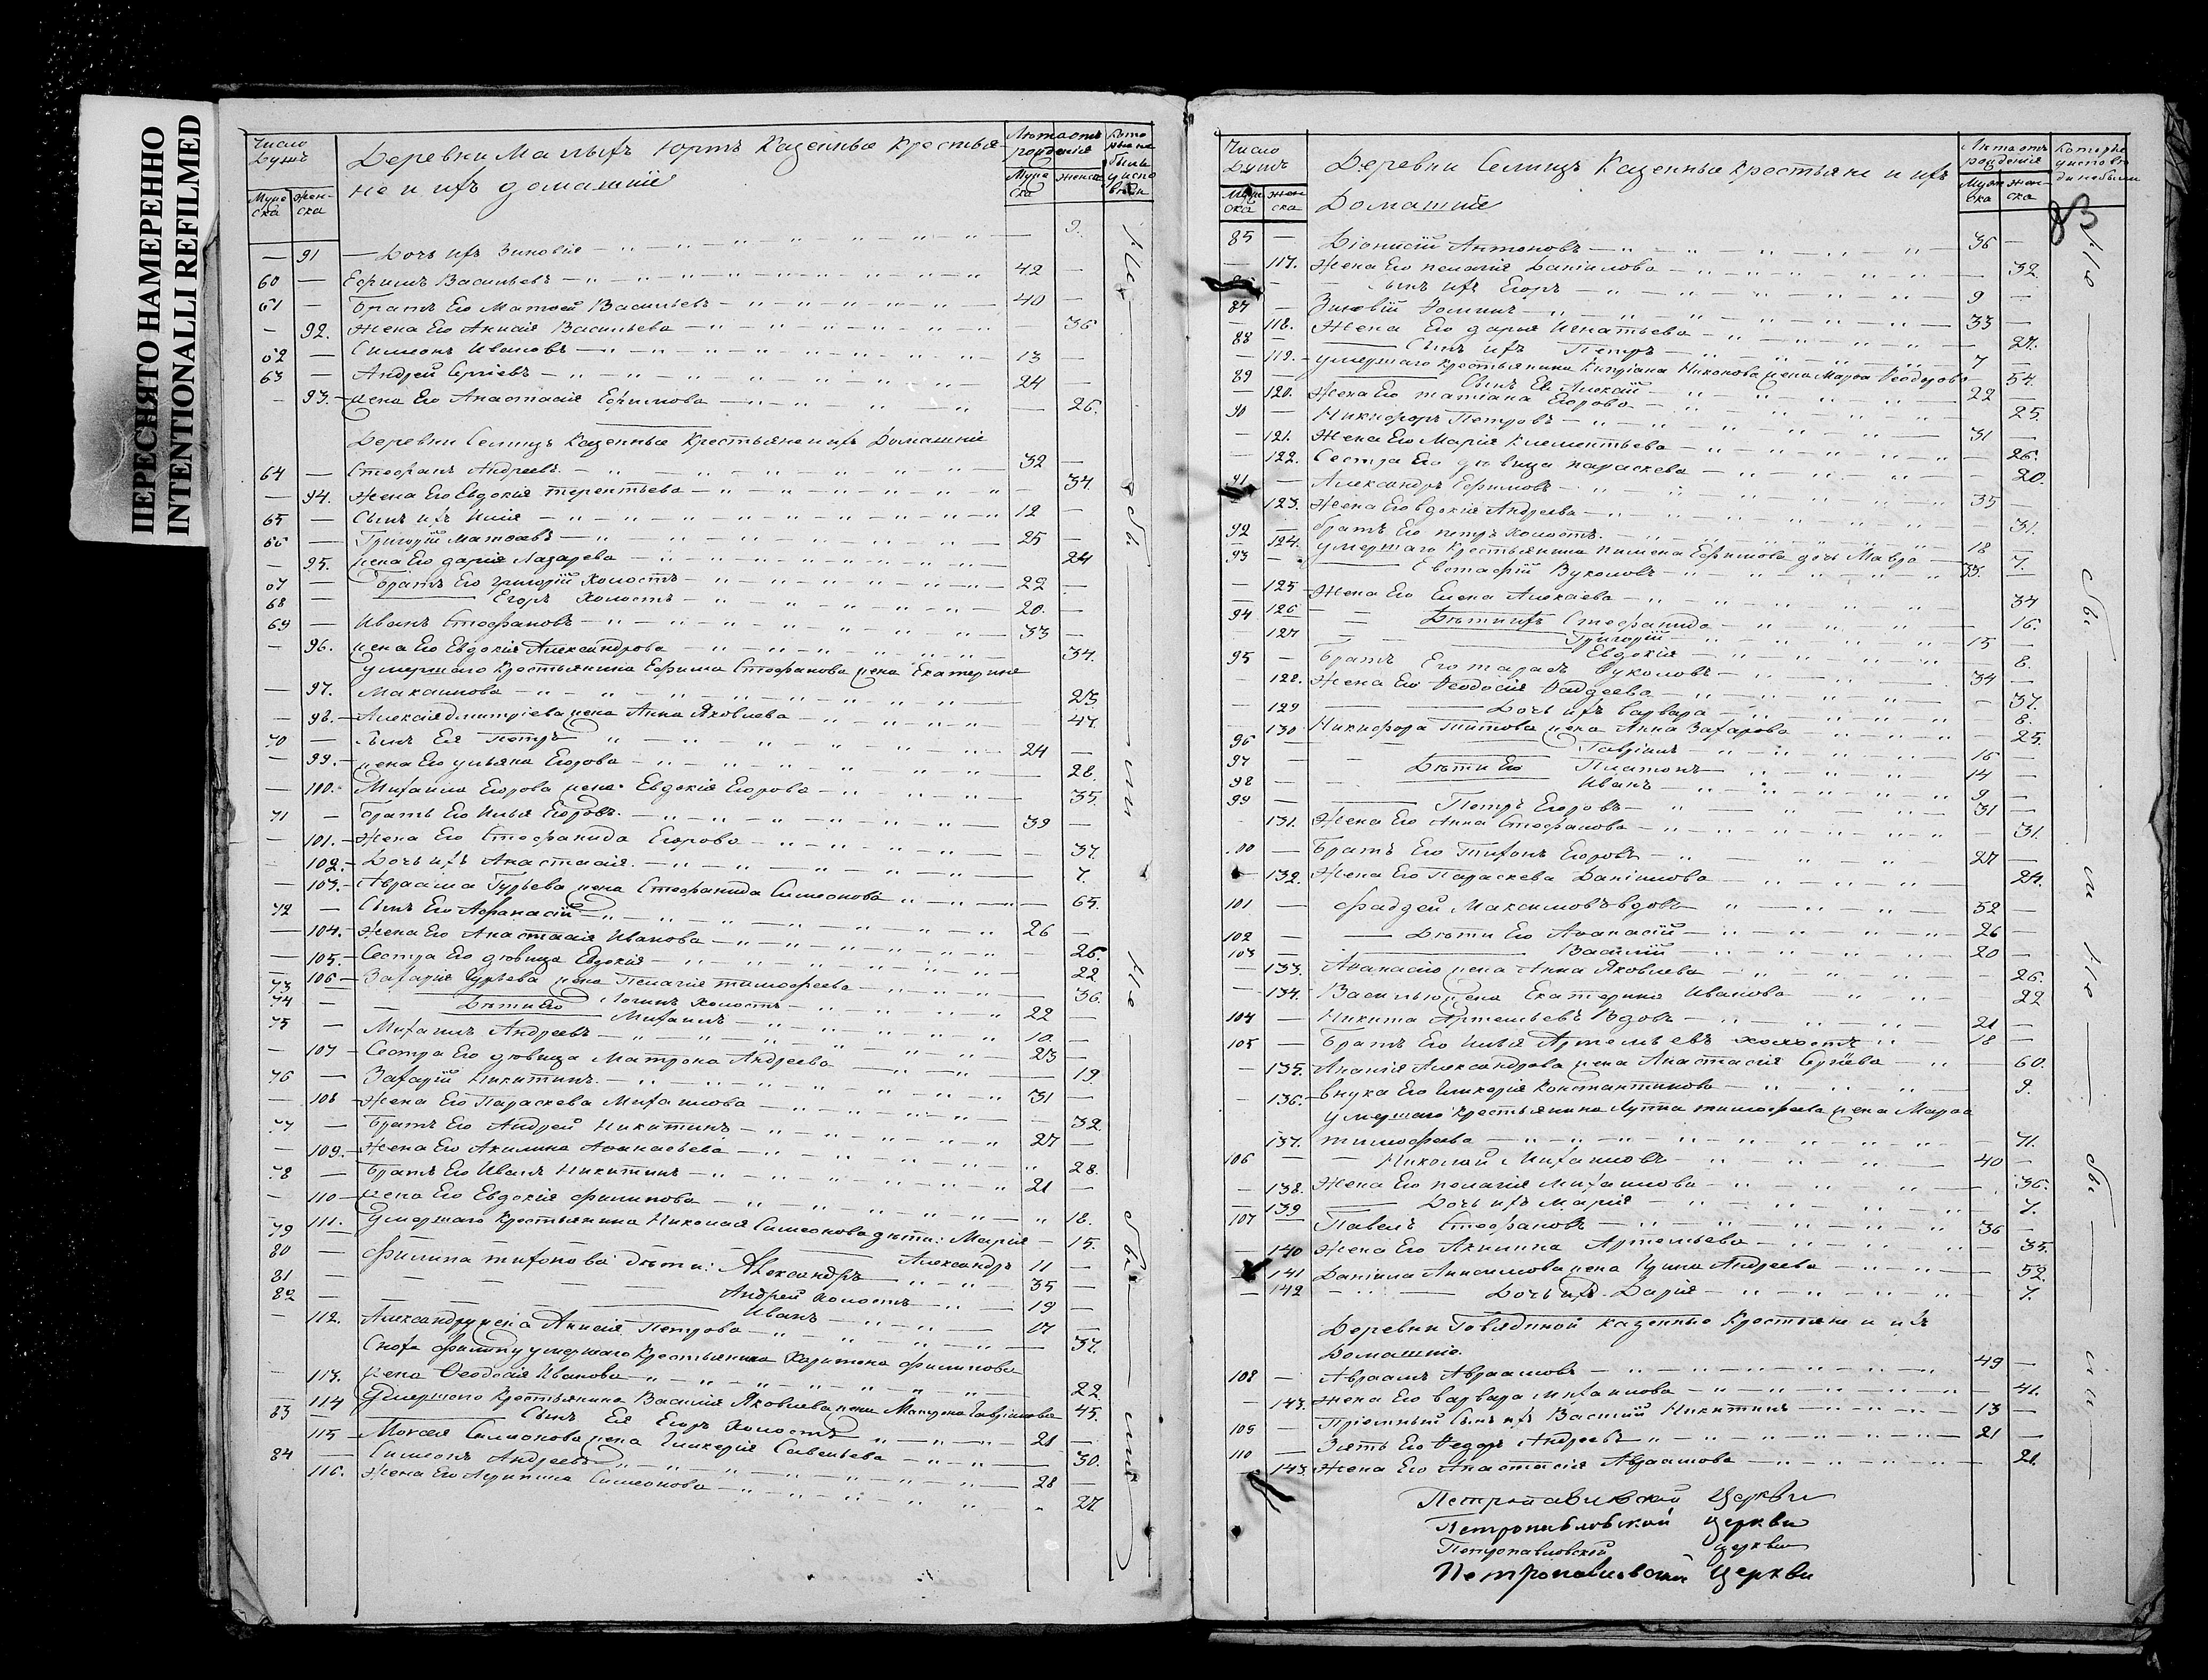 ПЕРЕСНЯТО НАМЕРЕННО
INTENTIONALLI REFILMED
Число Душъ
Муже ска
Жен- ска
Деревни Малыхъ Юртъ Казенные крестья-
не и ихъ домашніе
Лѣта отъ рожденія
Муже ска
женск
— 91 — Дочь ихъ Зиновія 9.
60 — Ефимъ Васильевъ 42 —
61 — Братъ Его Матвей Васильевъ 40 —
— 92. Жена Его Анисія Васильева 36
62 — Симеонъ Ивановъ 13 —
63 — Андрей Сергіевъ 24 —
— 93. жена Его Анастасія Ефимова — 26.
Деревни Селищъ Казенные Крестьяне и ихъ Домашніе
64 — Стефанъ Андреевъ 32 —
— 94. Жена Его Евдокія терентьева — 34.
65 — Сынъ ихъ Илія 12 —
66 — Григорій Матвѣевъ 25 —
— 95. жена Его дарія Лазарева — 24
67 — Братъ Его григорій холостъ 22 —
68 — Егоръ холостъ 20. —
69 — Иванъ Стефановъ 33 —
— 96. жена Его Евдокія Александрова 34.
умершаго крестьянина Ефима Стефанова жена Екатерина
— 97. Максимова 23
— 98. Алексія дмитріева жена Анна Яковлева 47.
70 — Сынъ Ея Петръ 24 —
— 99. жена Его ульяна Егорова — 28.
— 100. Михаила Егорова жена Евдокія Егорова 35.
71 — Братъ Его Илья Егоровъ 39 —
— 101. Жена Его Стефанида Егорова — 37.
— 102. Дочь ихъ Анастасія 7.
— 103. Авраама Гурьева жена Стефанида Симеонова 65.
72 — Сынъ Его Афанасій 26 —
— 104. Жена Его Анастасія Иванова 26.
— 105. Сестра Его дѣвица Евдокія 22
— 106 Захарія Гурьева жена Пелагія тимофеева 36.
73 — Дѣти Его Логинъ холостъ 22 —
74 — Михаилъ 10 —
75 — Михаилъ Андреевъ 23 —
— 107 Сестра Его дѣвица Матрона Андреева — 19.
76 — Захарій Никитинъ 31 —
— 108 Жена Его Параскева Михаилова — 32.
77 — Братъ Его Андрей Никитинъ 27 —
— 109. Жена Его Акилина Афанасьева 28.
78 — Братъ Его Иванъ Никитинъ 21 —
— 110 жена Его Евдокія филипова 18.
— 111. Умершаго крестьянина Николая Симеонова дѣти: Марія — 15.
79 — Александръ 11 —
80 — Филипа тихонова дѣти: Александръ 35 —
81 — Андрей холостъ 19 —
82 — Иванъ 17 —
— 112. Александру жена Анисія Петрова 37.
Сноха филипу умершаго крестьянина Харитона филипова
— 113. жена Феодосія Иванова 22
— 114 Умершаго крестьянина Василія Яковлева жена Матрона Гавріилова 45.
83 — Сынъ Ея Егоръ холостъ 21 —
— 115 Моисея Симеонова жена Гликерія Савельева — 30.
84 — Симеонъ Андреевъ 28 —
— 116. Жена Его Агрипина Симеонова 27.
Не были
Не были
Число Душъ
Муже ска
жен- ска
Деревни Селищъ Казенные крестьяне и ихъ
Домашніе
Лѣта отъ рожденія
Муже ска
жен- ска
Которые у исповѣди не были
83
85 — Діонисій Антоновъ 36 —
— 117. Жена Его пелагія Даніилова — 32.
86 — Сынъ ихъ Егоръ 9 —
87 — Зиновій Фоминъ 33 —
— 118. Жена Его дарья Игнатьева — 27.
88 — Сынъ ихъ Петръ 7
— 119. умершаго крестьянина Кипріана Никонова жена Марфа Феодорова 54.
89 — Сынъ Ея Алексій 22 —
— 120. Жена Его татіана Егорова 25.
90 — Никифоръ Петровъ 31 —
— 121. Жена Его Марія Климентьева — 26.
— 122. Сестра Его дѣвица параскева 20.
91 — Александръ Ефимовъ 35 —
— 123. Жена Его евдокія Андреева — 31.
92 — братъ Его петръ холостъ 18 —
— 124. умершаго крестьянина пимена Ефимова дочь Мавра 7.
93 — Евстафій Вуколовъ 35. —
— 125 Жена Его Елена Алексіева 34
— 126 Дѣти ихъ Стефанида — 16.
94 — Григорій 15 —
— 127 Евдокія 8.
95 — Братъ Его тарасъ Вуколовъ 34 —
— 128. Жена Его Феодосія Фаддеева — 37.
— 129 Дочь ихъ варвара 8.
— 130 Никифора Титова жена Анна Захарова — 25.
96 — Гавріилъ 16 —
97 — Дѣти Его Платонъ 14 —
98 — Иванъ 9 —
99 — Петръ Егоровъ 31 —
— 131. Жена Его Анна Стефанова — 31.
100 — Братъ Его Тихонъ Егоровъ 27 —
— 132. Жена Его Параскева Даніилова 24.
101 — Фаддей Максимовъ вдовъ 52 —
102 — Дѣти Его Афанасій 26 —
103 — Василій 20 —
— 133. Афанасію жена Анна Яковлева 26.
— 134. Василью жена Екатерина Иванова 22
104 — Никита Артемьевъ Вдовъ 21 —
105 — Братъ Его Илья Артемьевъ холостъ 18 —
— 135. Ананія Александрова жена Анастасія Сергіева 60.
— 136. внука Его Гликерія Константинова 9.
умершаго крестьянина Луппа тимофеева жена Марфа
137. тимофеева — 71.
106 — Николай Михаиловъ 40 —
— 138. Жена Его пелагія Михаилова 36.
— 139 Дочь ихъ Марія 7.
107 — Павелъ Стефановъ 36 —
— 140 Жена Его Акилина Артемьева — 35.
— 141 Даніила Анисимова жена Ирина Андреева 52.
— 142 Дочь ихъ Дарія 7.
Деревни Говядиной казенные Крестьяне и ихъ
Домашніе
108 — Авраамъ Авраамовъ 49 —
— 143. жена Его варвара михаилова — 41.
109 — Пріемный сынъ ихъ Василій Никитинъ 13 —
110 — Зять Его Федоръ Андреевъ 21 —
— 143. Жена Его Анастасія Авраамова 21.
Не были
Не были
Петропавловской Церкви
Петропавловской церкви
Петропавловской церкви
Петропавловской Церкви